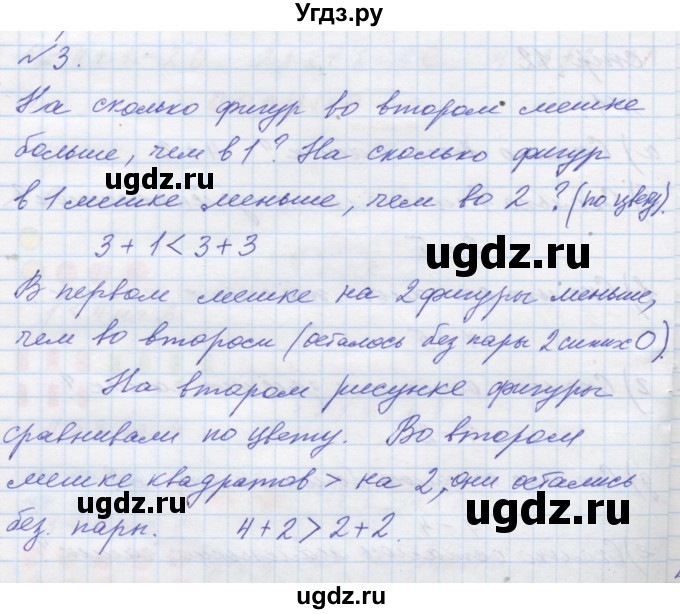 Угдз.ру
№3.
На сколько фигур во втором мешке
больше, чем в 1? На сколько фигур
в 1 мешке меньше, чем во 2? (по цвету).
3+1<3+3
В первом мешке на 2 фигуры меньше,
чем во втором (осталось без пары 2 синих О).
На втором рисунке фигуры
сравнивали по цвету. Во втором
мешке квадратов > на 2, они остались
без. пары. 4+2>2+2.
ugdz.ru
ugdz.ru
ugdz.ru
ugdz.ru
ugdz.ru
ugdz.ru
ugdz.ru
ugdz.ru